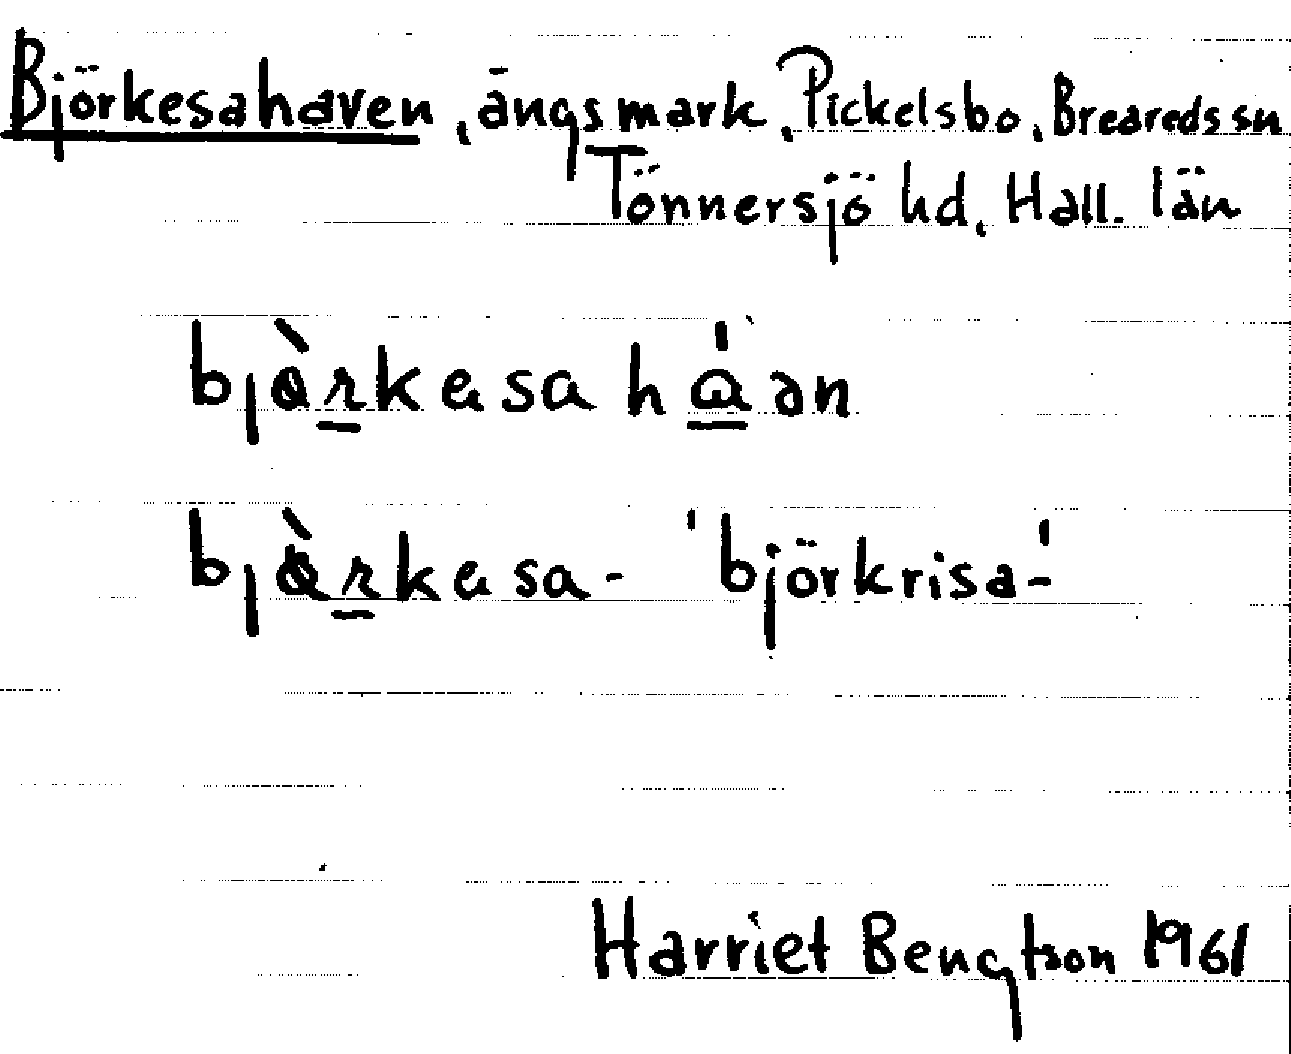 Björkesahaven, ängsmark, Pickelsbo, Breareds sn
Tönnersjö hd, Hall. län
bjàrkesa háən
bjàrkesa- 'björkrisa-'
Harriet Bengtson 1961